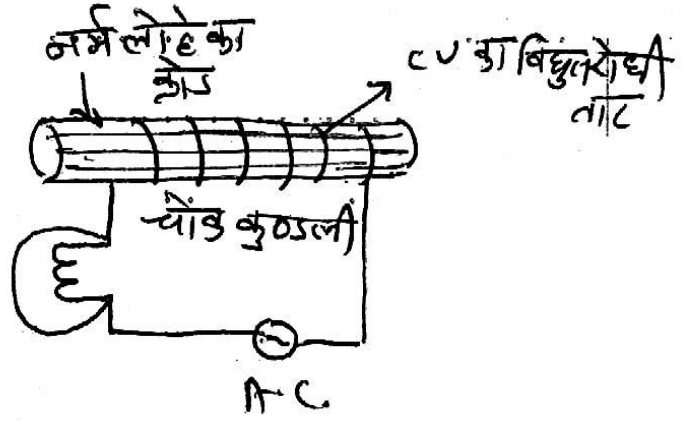 नर्म लोहे का
क्रोड
CU का विधुतरोधी
तार
चोक कुण्डली
A-C.